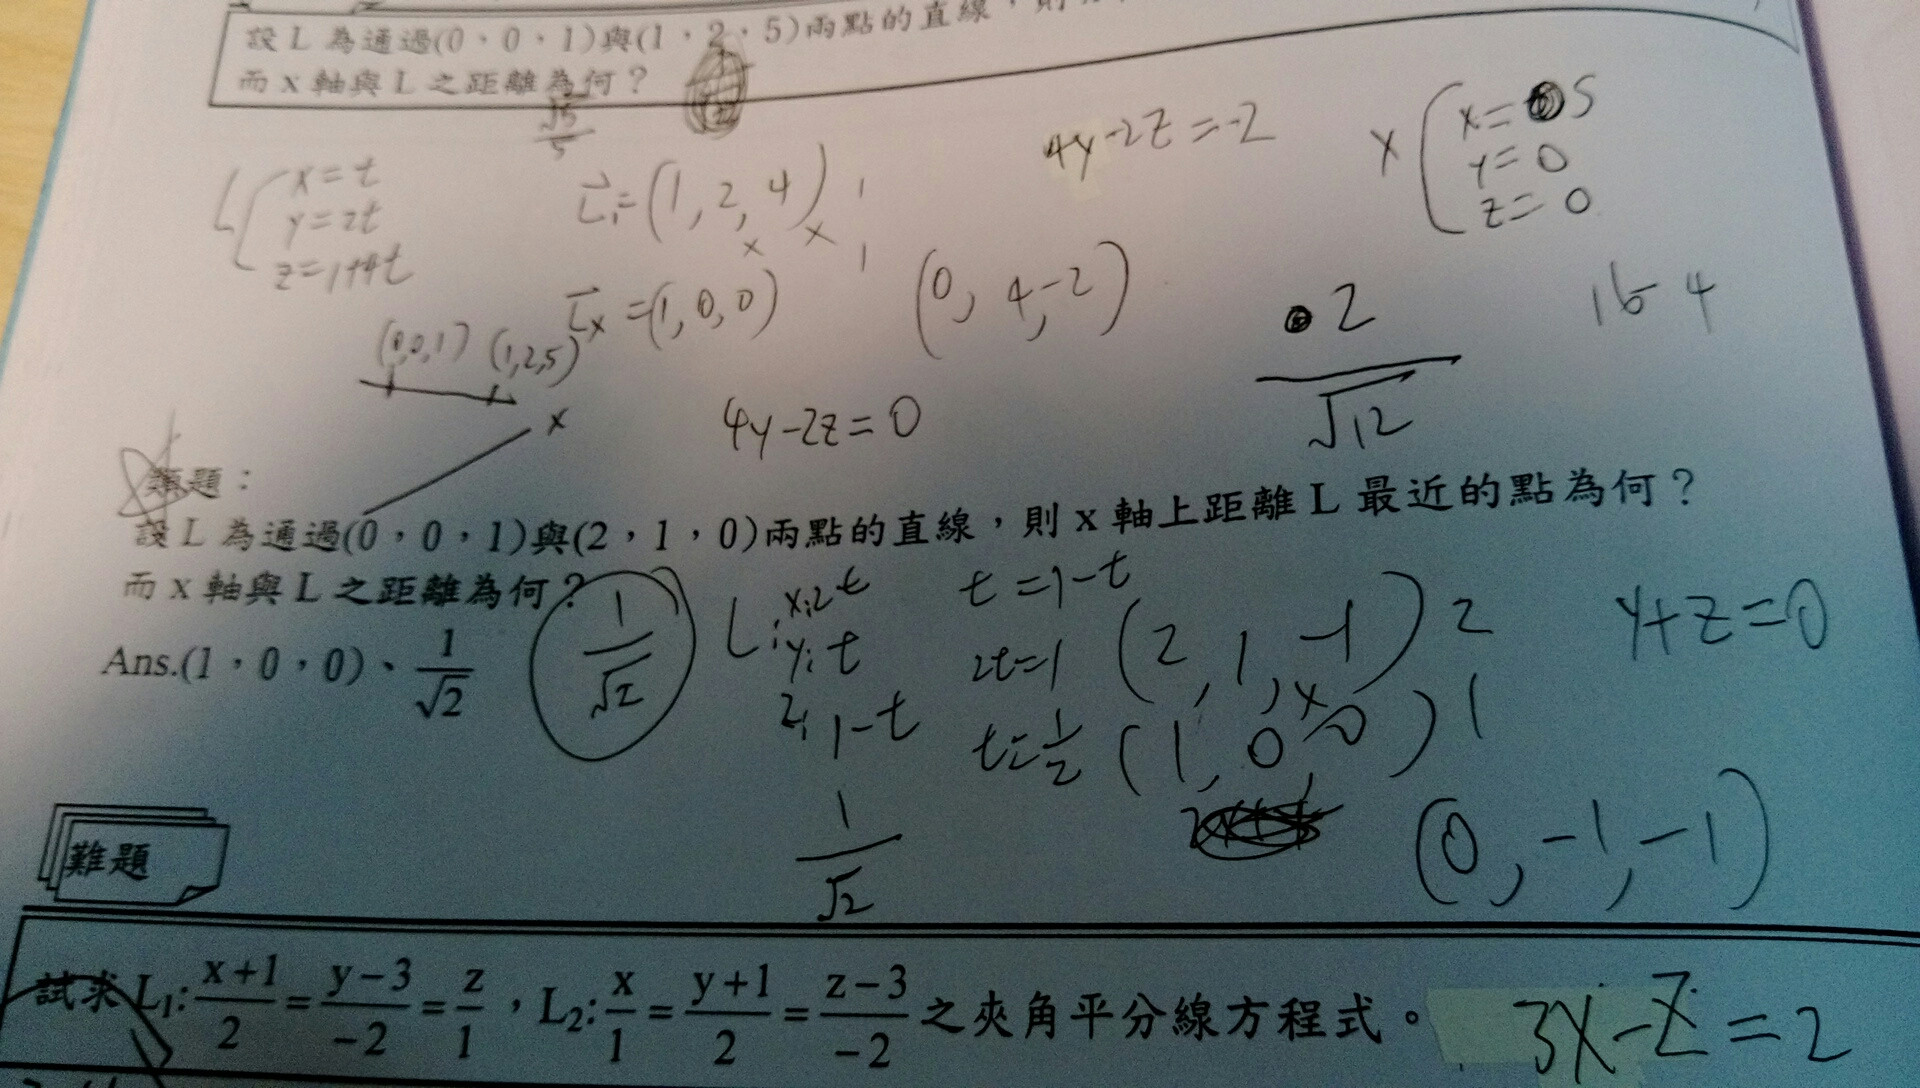 設 L 為通過(0，0，1)與(1，2，5)兩點的直線，則
而 x 軸與 L 之距離為何？
√5/5
L { x=t
y=2t
z=1+4t
L₁=(1,2,4)
Lx=(1,0,0)
4y-2z=-2
x { x=5
y=0
z=0
(0,4,-2)
2/√12
16-4
(0,0,1) (1,2,5)
x
4y-2z=0
類題：
設 L 為通過(0，0，1)與(2，1，0)兩點的直線，則 x 軸上距離 L 最近的點為何？
而 x 軸與 L 之距離為何？
Ans.(1，0，0)、1/√2
1/√2
L: x:2t
y:t
z:1-t
t=1-t
2t=1
t=1/2
(2,1,-1) 2
(1,0,0) 1
y+z=0
1/√2
(0,-1,-1)
難題
試求 L₁: (x+1)/2 = (y-3)/-2 = z/1，L₂: x/1 = (y+1)/2 = (z-3)/-2 之夾角平分線方程式。
3x-z=2